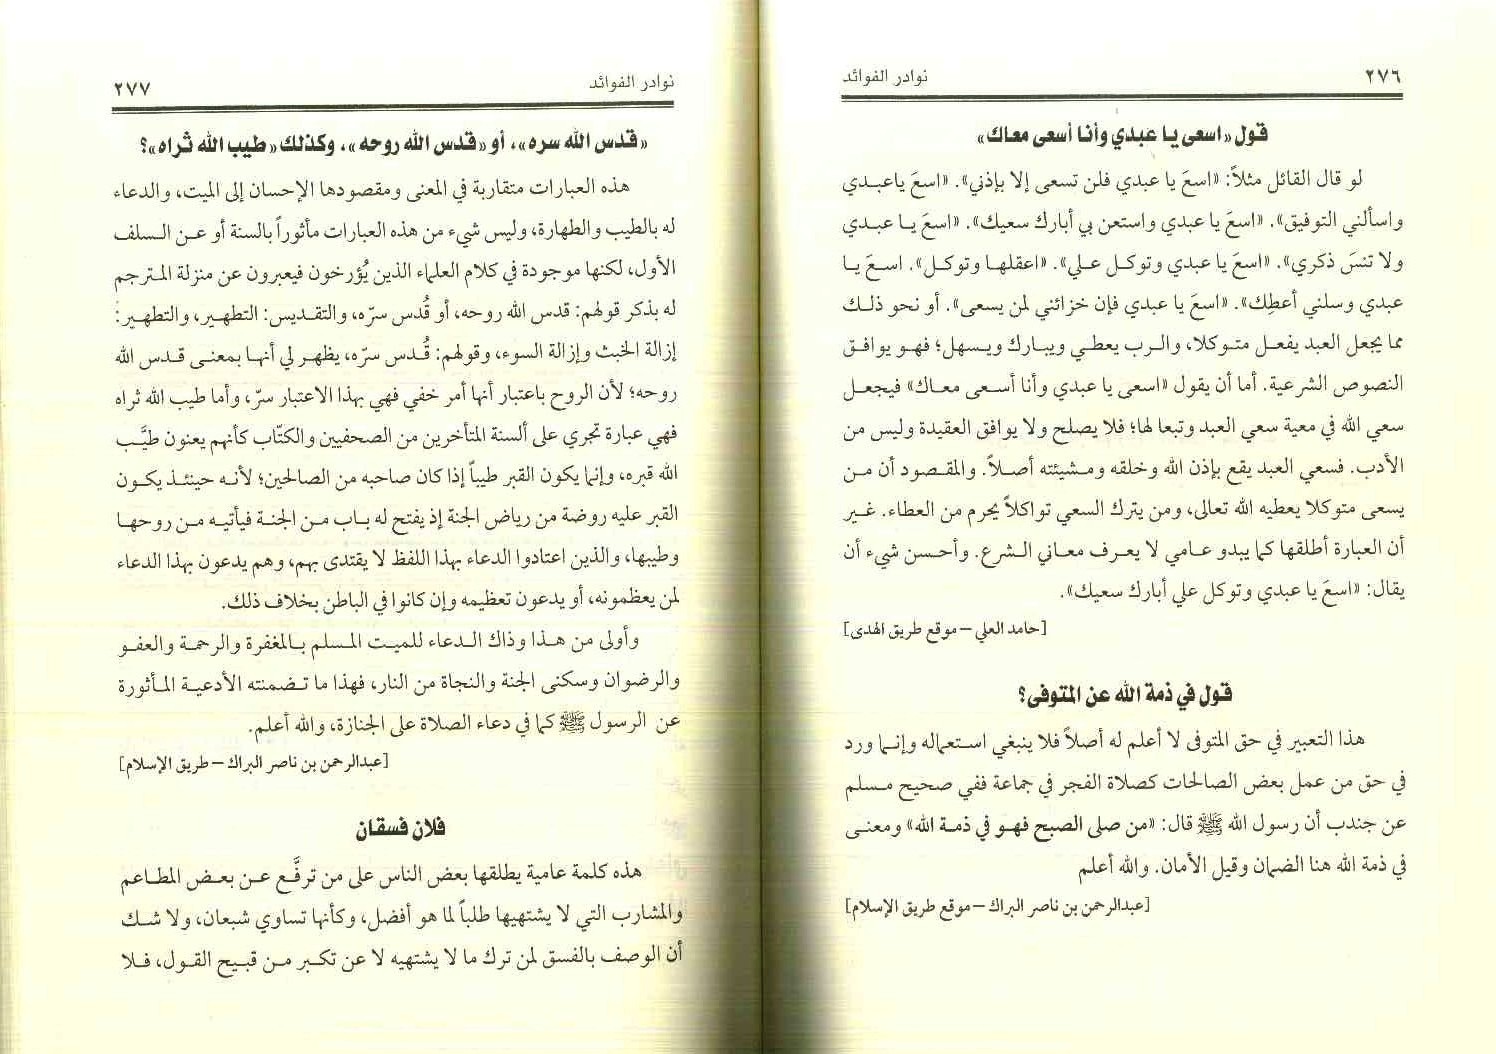 ٢٧٦
نوادر الفوائد
قول «اسعى يا عبدي وأنا أسعى معاك»
لو قال القائل مثلاً: «اسعَ يا عبدي فلن تسعى إلا بإذني». «اسعَ ياعبدي
واسألني التوفيق». «اسعَ يا عبدي واستعن بي أبارك سعيك». «اسعَ يا عبدي
ولا تنسَ ذكري». «اسعَ يا عبدي وتوكل علي». «اعقلها وتوكل». اسعَ يا
عبدي وسلني أعطِك». «اسعَ يا عبدي فإن خزائني لمن يسعى». أو نحو ذلك
مما يجعل العبد يفعل متوكلا، والرب يعطي ويبارك ويسهل؛ فهو يوافق
النصوص الشرعية. أما أن يقول «اسعى يا عبدي وأنا أسعى معاك» فيجعل
سعي الله في معية سعي العبد وتبعا لها؛ فلا يصلح ولا يوافق العقيدة وليس من
الأدب. فسعي العبد يقع بإذن الله وخلقه ومشيئته أصلاً. والمقصود أن من
يسعى متوكلا يعطيه الله تعالى، ومن يترك السعي تواكلاً يحرم من العطاء. غير
أن العبارة أطلقها كما يبدو عامي لا يعرف معاني الشرع. وأحسن شيء أن
يقال: «اسعَ يا عبدي وتوكل علي أبارك سعيك».
[حامد العلي – موقع طريق الهدى]
قول في ذمة الله عن المتوفى؟
هذا التعبير في حق المتوفى لا أعلم له أصلاً فلا ينبغي استعماله وإنما ورد
في حق من عمل بعض الصالحات كصلاة الفجر في جماعة ففي صحيح مسلم
عن جندب أن رسول الله ﷺ قال: «من صلى الصبح فهو في ذمة الله» ومعنى
في ذمة الله هنا الضمان وقيل الأمان. والله أعلم
[عبدالرحمن بن ناصر البراك – موقع طريق الإسلام]
نوادر الفوائد
٢٧٧
«قدس الله سره»، أو «قدس الله روحه»، وكذلك «طيب الله ثراه»؟
هذه العبارات متقاربة في المعنى ومقصودها الإحسان إلى الميت، والدعاء
له بالطيب والطهارة، وليس شيء من هذه العبارات مأثوراً بالسنة أو عن السلف
الأول، لكنها موجودة في كلام العلماء الذين يُؤرخون فيعبرون عن منزلة المترجم
له بذكر قولهم: قدس الله روحه، أو قُدس سرّه، والتقديس: التطهير، والتطهير:
إزالة الخبث وإزالة السوء، وقولهم: قُدس سرّه، يظهر لي أنها بمعنى قدس الله
روحه؛ لأن الروح باعتبار أنها أمر خفي فهي بهذا الاعتبار سرّ، وأما طيب الله ثراه
فهي عبارة تجري على ألسنة المتأخرين من الصحفيين والكتّاب كأنهم يعنون طيَّب
الله قبره، وإنما يكون القبر طيباً إذا كان صاحبه من الصالحين؛ لأنه حينئذ يكون
القبر عليه روضة من رياض الجنة إذ يفتح له باب من الجنة فيأتيه من روحها
وطيبها، والذين اعتادوا الدعاء بهذا اللفظ لا يقتدى بهم، وهم يدعون بهذا الدعاء
لمن يعظمونه، أو يدعون تعظيمه وإن كانوا في الباطن بخلاف ذلك.
وأولى من هذا وذاك الدعاء للميت المسلم بالمغفرة والرحمة والعفو
والرضوان وسكنى الجنة والنجاة من النار، فهذا ما تضمنته الأدعية المأثورة
عن الرسول ﷺ كما في دعاء الصلاة على الجنازة، والله أعلم.
[عبدالرحمن بن ناصر البراك – طريق الإسلام]
فلان فسقان
هذه كلمة عامية يطلقها بعض الناس على من ترفَّع عن بعض المطاعم
والمشارب التي لا يشتهيها طلباً لما هو أفضل، وكأنها تساوي شبعان، ولا شك
أن الوصف بالفسق لمن ترك ما لا يشتهيه لا عن تكبر من قبيح القول، فلا